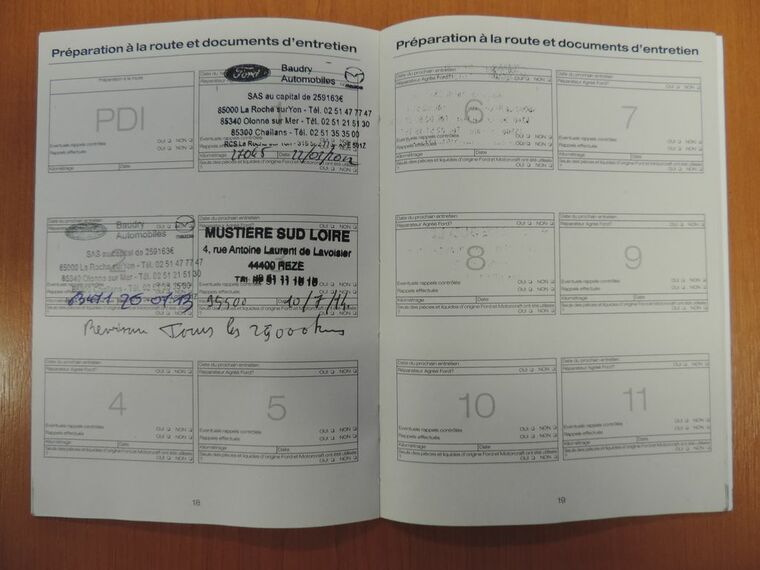 Préparation à la route et documents d'entretien
Préparation à la route
PDI
Eventuels rappels contrôlés OUI NON
Rappels effectués OUI NON
Kilométrage Date
Ford Baudry
Automobiles mazda
SAS au capital de 259163€
85000 La Roche sur Yon - Tél. 02 51 47 77 47
85340 Olonne sur Mer - Tél. 02 51 21 51 30
85300 Challans - Tél. 02 51 35 35 00
Kilométrage Date
Date du prochain entretien
Baudry
Automobiles
SAS au capital de 259163€
85000 La Roche sur Yon - Tél. 02 51 47 77 47
85340 Olonne sur Mer - Tél. 02 51 21 51 30
Date du prochain entretien
OUI NON
MUSTIERE SUD LOIRE
4, rue Antoine Laurent de Lavoisier
44400 REZE
35500 10/7/14
Revision Tous les
Date du prochain entretien
Réparateur Agréé Ford? OUI NON
4
Eventuels rappels contrôlés OUI NON
Rappels effectués OUI NON
Kilométrage Date
Seules des pièces et liquides d'origine Ford et Motorcraft ont été utilisés
? OUI NON
Date du prochain entretien
Réparateur Agréé Ford? OUI NON
5
Eventuels rappels contrôlés OUI NON
Rappels effectués OUI NON
Kilométrage Date
Seules des pièces et liquides d'origine Ford et Motorcraft ont été utilisés
? OUI NON
18
Préparation à la route et documents d'entretien
Date du prochain entretien
6
Eventuels rappels contrôlés OUI NON
Rappels effectués OUI NON
Kilométrage Date
Seules des pièces et liquides d'origine Ford et Motorcraft ont été utilisés
? OUI NON
Date du prochain entretien
Réparateur Agréé Ford? OUI NON
7
Eventuels rappels contrôlés OUI NON
Rappels effectués OUI NON
Kilométrage Date
Seules des pièces et liquides d'origine Ford et Motorcraft ont été utilisés
? OUI NON
Date du prochain entretien
Réparateur Agréé Ford? OUI NON
8
Eventuels rappels contrôlés OUI NON
Rappels effectués OUI NON
Kilométrage Date
Seules des pièces et liquides d'origine Ford et Motorcraft ont été utilisés
? OUI NON
Date du prochain entretien
Réparateur Agréé Ford? OUI NON
9
Eventuels rappels contrôlés OUI NON
Rappels effectués OUI NON
Kilométrage Date
Seules des pièces et liquides d'origine Ford et Motorcraft ont été utilisés
? OUI NON
Date du prochain entretien
Réparateur Agréé Ford? OUI NON
10
Eventuels rappels contrôlés OUI NON
Rappels effectués OUI NON
Kilométrage Date
Seules des pièces et liquides d'origine Ford et Motorcraft ont été utilisés
? OUI NON
Date du prochain entretien
Réparateur Agréé Ford? OUI NON
11
Eventuels rappels contrôlés OUI NON
Rappels effectués OUI NON
Kilométrage Date
Seules des pièces et liquides d'origine Ford et Motorcraft ont été utilisés
? OUI NON
19